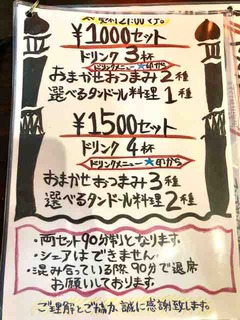 受付21:00マデ。
¥1000セット
ドリンク3杯
ドリンクメニュー★印から
おまかせおつまみ2種
選べるタンドール料理1種
¥1500セット
ドリンク4杯
ドリンクメニュー★印から
おまかせおつまみ3種
選べるタンドール料理2種
・両セット90分制となります。
・シェアはできません。
・混み合っている際90分で退席
お願いしております。
ご理解とご協力、誠に感謝致します。